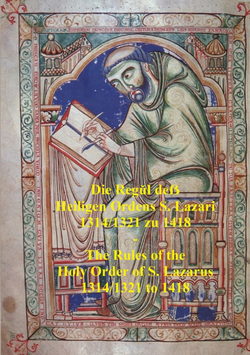 Die Regül deß
Heiligen Ordens S. Lazari
1314/1321 zu 1418
-
The Rules of the
Holy Order of S. Lazarus
1314/1321 to 1418